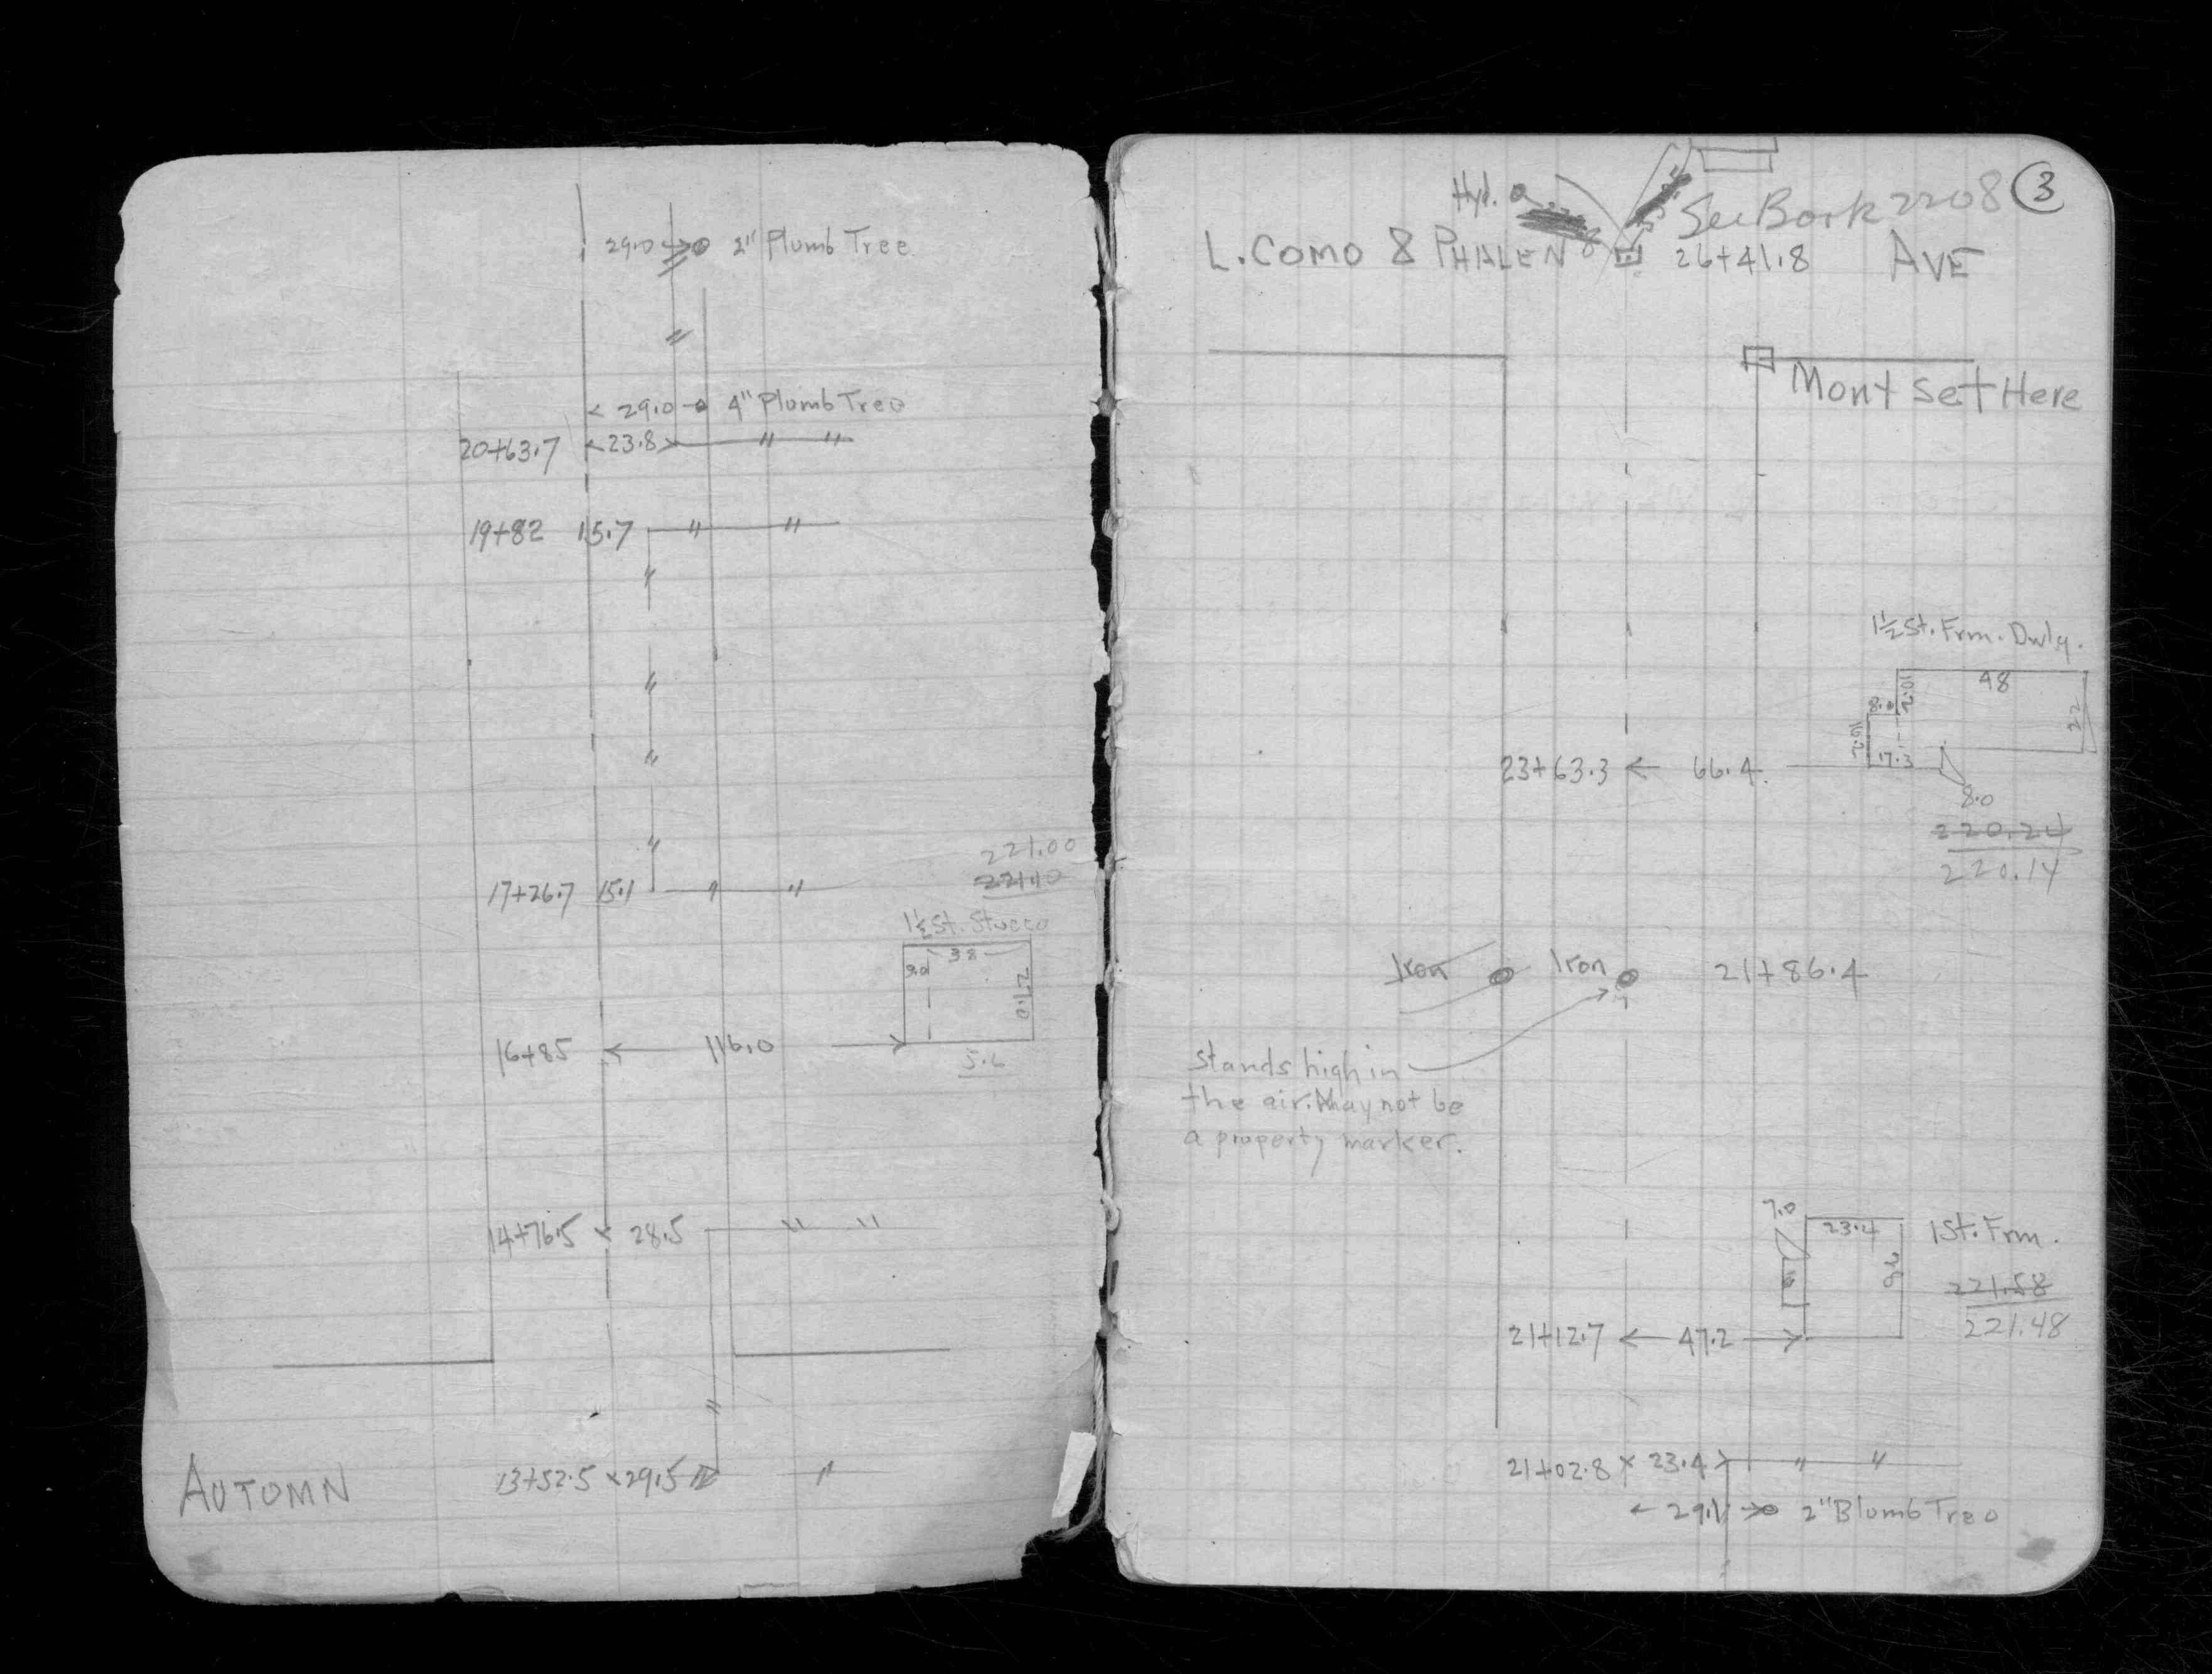 29.0 2" Plumb Tree
"
29.0 4" Plumb Tree
20+63.7 23.8 " "
19+82 15.7 " "
"
"
"
"
221.00
17+26.7 15.1 " "
1½ St. Stucco
38
9.0
27.0
16+85 116.0
5.6
14+76.5 28.5 " "
"
AUTOMN 13+52.5 × 29.5 "
3
Hyd. See Book 2208
L. COMO & PHALEN 26+41.8 AVE
Mont Set Here
1½ St. Frm. Dwlg.
48
10.2
8.0
22
16.2
17.3
23+63.3 66.4
8.0
220.24
220.14
Iron Iron 21+86.4
Stands high in
the air. May not be
a property marker.
7.0
23.4 1 St. Frm.
221.58
221.48
21+12.7 47.2
21+02.8 × 23.4 " "
29.1 2" Blumb Tree